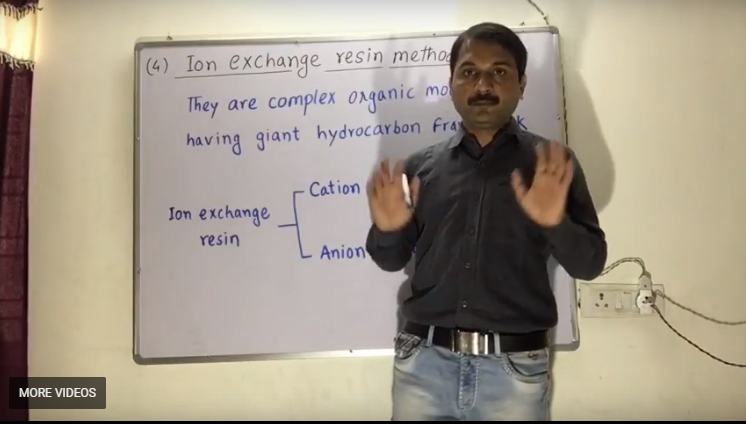 (4) Ion exchange resin
They are complex organic
having giant hydrocarbon
Ion exchange
resin
Cation
Anion
MORE VIDEOS